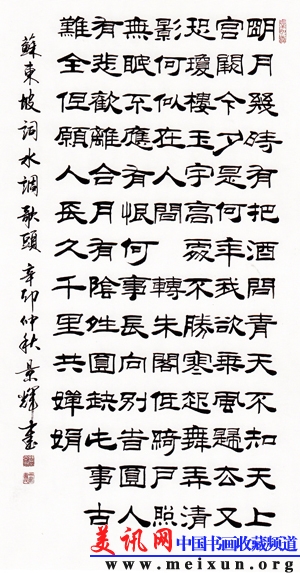 明月幾時有把酒問青天不知天上
宮闕今夕是何年我欲乘風歸去又
恐瓊樓玉宇高處不勝寒起舞弄清
影何似在人間 轉朱閣低綺戶照
無眠不應有恨何事長向別時圓人
有悲歡離合月有陰晴圓缺此事古
難全但願人長久千里共嬋娟
蘇東坡詞水調歌頭 辛卯仲秋 景輝書
美讯网 中国书画收藏频道
www.meixun.org